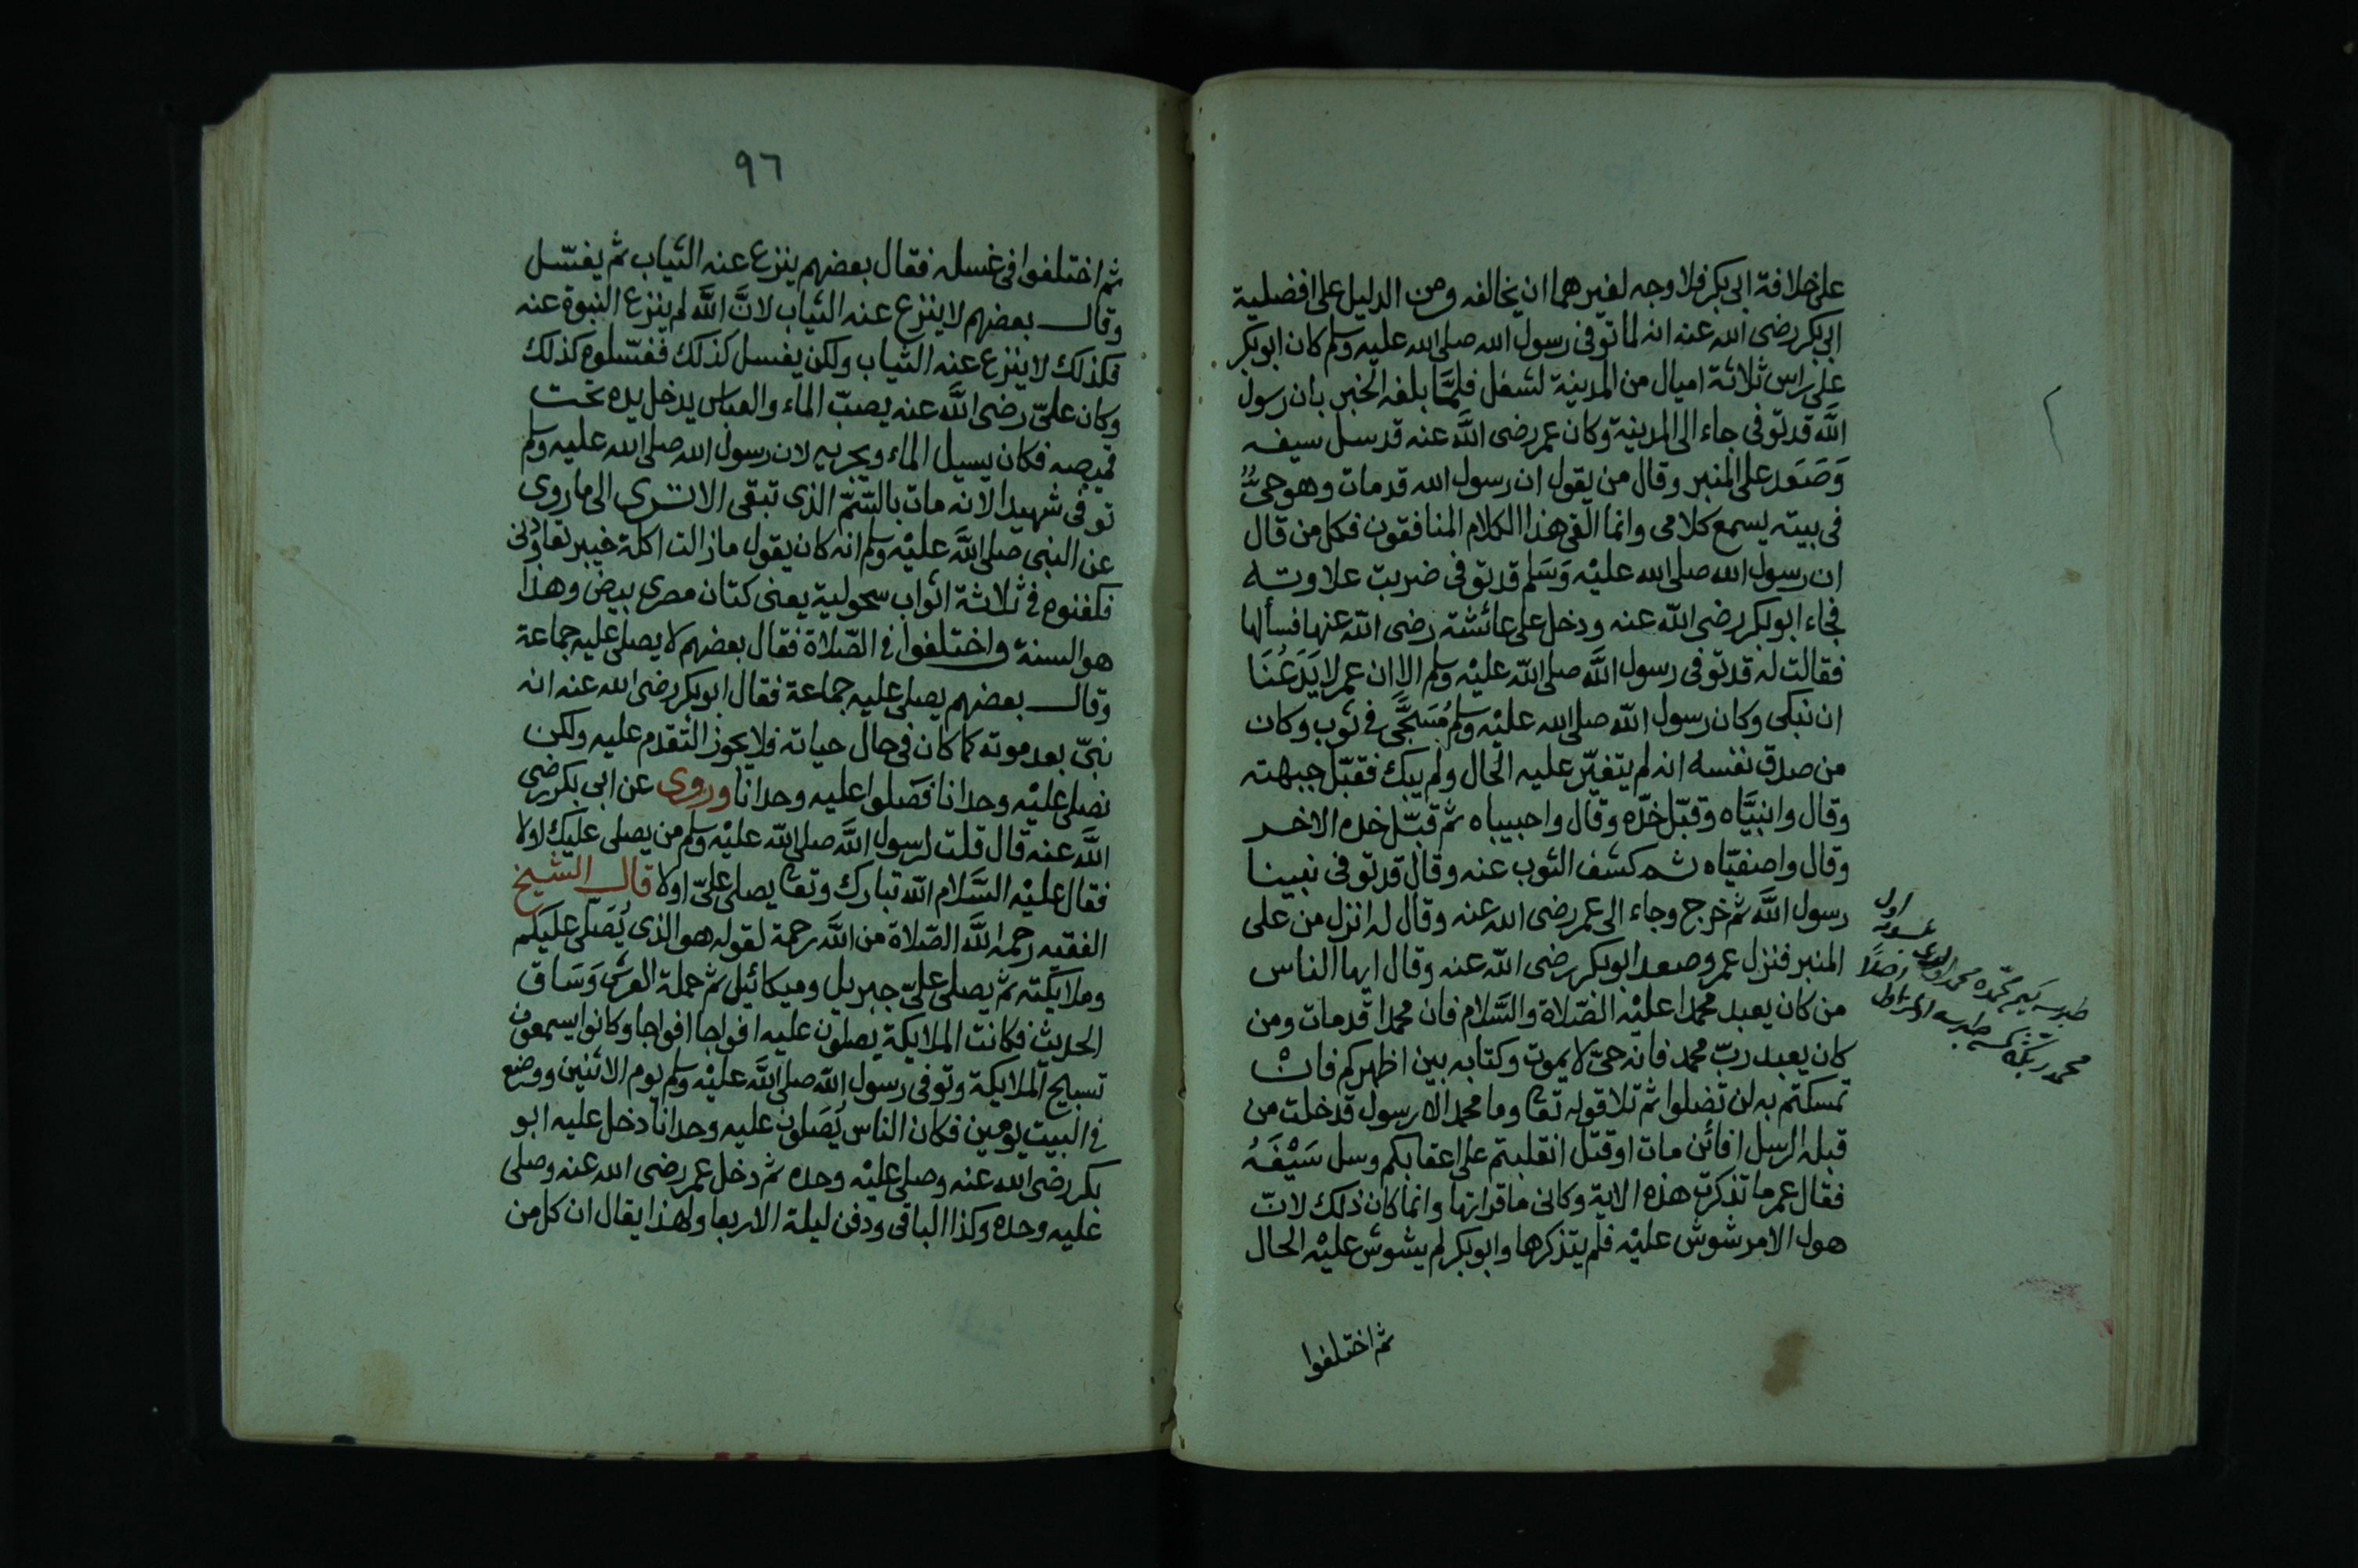 على خلافة ابى بكر فلا وجه لغيرهما ان يخالفه ومن الدليل على افضلية
ابى بكر رضى الله عنه انه لما توفى رسول الله صلى الله عليه وسلم كان ابو بكر
على راس ثلاثة اميال من المدينة لشغل فلمَّا بلغه الخبر بان رسول
اللَّه قد توفى جاء الى المدينة وكان عمر رضى اللَّه عنه قد سل سيفه
وَصَعَد على المنبر وقال من يقول ان رسول الله قد مات وهو حىٌّ
فى بيته يسمع كلامى وانما القى هذا الكلام المنافقون فكل من قال
ان رسول الله صلى الله عليْه وَسَلم قد توفى ضربت علاوته
فجاء ابو بكر رضى اللّه عنه ودخل على عائشة رضى اللّه عنها فسألها
فقالت له قد توفى رسول اللَّه صلى اللّه عليْه وسلم الا ان عمر لا يَدَعُنَا
ان نبكى وكان رسول اللّه صلى الله عليْه وسلم مُسَجًّى فى ثوب وكان
من صدق نفسه انه لم يتغيّر عليه الحال ولم يبك فقبّل جبهته
وقال وانبيَّاه وقبّل خدّه وقال واحبيباه ثم قبّل خده الاخر
وقال واصفيّاه ثم كشف الثوب عنه وقال قد توفى نبينا
رسول اللَّه ثم خرج وجاء الى عمر رضى الله عنه وقال له انزل من على
المنبر فنزل عمر وصعد ابو بكر رضى اللّه عنه وقال ايها الناس
من كان يعبد محمدا عليْه الصّلاة والسَّلام فان محمدا قد مات ومن
كان يعبد ربّ محمد فانه حىّ لا يموت وكتابه بين اظهركم فانْ
تمسكتم به لن تضلوا ثم تلا قوله تعا وما محمد الا رسول قد خلت من
قبله الرسل افائن مات او قتل انقلبتم على اعقابكم وسل سَيْفَهُ
فقال عمر ما تذكرت هذه الاية وكانى ما قراتها وانما كان ذلك لانّ
هول الامر شوش عليْه فلم يتذكرها وابو بكر لم يشوش عليْه الحال
ثم اختلفوا
٩٦
ثم اختلفوا فى غسله فقال بعضهم ينزع عنه الثياب ثم يغسّل
وقال بعضهم لا ينزع عنه الثياب لانَّ اللَّه لم ينزع النبوة عنه
فكذلك لا ينزع عنه الثياب ولكن يغسل كذلك فغسّلوه كذلك
وكان علىّ رضى اللَّه عنه يصبّ الماء والعباس يدخل يده تحت
قميصه فكان يسيل الماء ويجريه لان رسول الله صلى الله عليه وسلم
توفى شهيدا لانه مات بالسّمّ الذى تبقى الا ترى الى ما روى
عن النبى صلى اللَّه عليْه وسلم انه كان يقول ما زالت اكلة خيبر تعاودنى
فكفنوه فى ثلاثة اثواب سحولية يعنى كتان مصرى بيض وهذا
هو السنة واختلفوا فى الصّلاة فقال بعضهم لا يصلى عليه جماعة
وقال بعضهم يصلى عليه جماعة فقال ابو بكر رضى الله عنه انه
نبىّ بعد موته كما كان فى حال حياته فلا يجوز التقدم عليه ولكن
نصلى عليْه وحدانا فصَلوا عليه وحدانا وروى عن ابى بكر رضى
اللَّه عنه قال قلت لرسول اللَّه صلى اللّه عليْه وسلم من يصلى عليك اولا
فقال عليْه السَّلام اللّه تبارك وتعا يصلى علىّ اولا قال الشيخ
الفقيه رحمه اللَّه الصّلاة من اللَّه رحمة لقوله هو الذى يُصَلى عليكم
وملايكته ثم يصلى علىّ جبريل وميكائيل ثم حملة العرش وَسَاق
الحديث فكانت الملايكة يصلون عليه افواجا افواجا وكانوا يسمعون
تسبيح الملايكة وتوفى رسول اللّه صلى اللَّه عليْه وسلم يوم الاثنين ووضع
فى البيت يومين فكان الناس يُصَلون عليه وحدانا دخل عليه ابو
بكر رضى الله عنه وصلى عليْه وحده ثم دخل عمر رضى الله عنه وصلى
عليه وحده وكذا الباقى ودفن ليلة الاربعا ولهذا يقال ان كل من